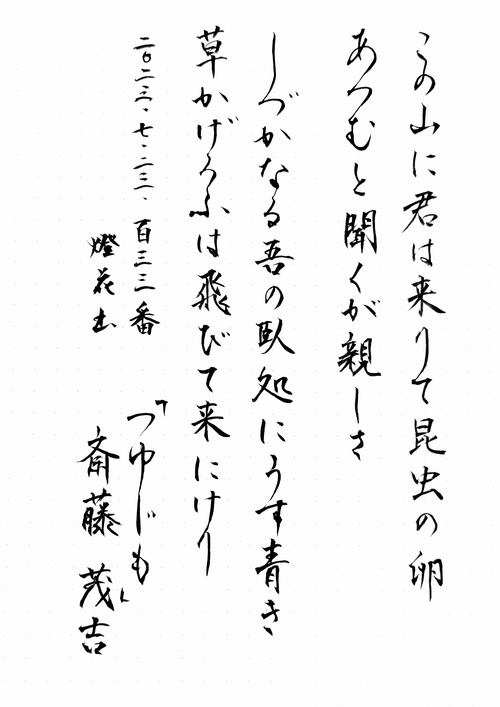 この山に君は来りて昆虫の卵
あつむと聞くが親しさ
しづかなる吾の臥処にうす青き
草かげろふは飛びて来にけり
二〇二三、七、二三、百三三番
燈花出
「つゆじも」
斎藤茂吉